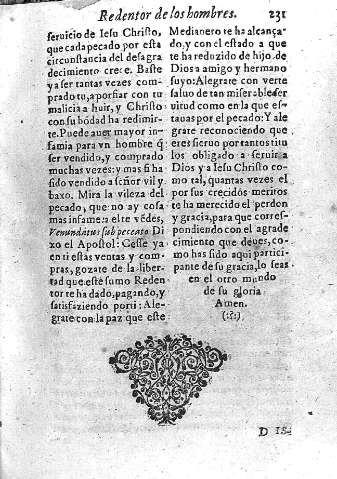 Redentor de los hombres. 231
seruicio de Iesu Christo,
que cada pecado por esta
circunstancia del desagra
decimiento crece. Baste
ya ser tantas vezes com-
prado tu, a porfiar con tu
malicia a huir, y Christo
con su bõdad ha redimir-
te. Puede auer mayor in-
famia para vn hombre q̃
ser vendido, y comprado
muchas vezes: y mas si ha
sido vendido a señor vil y
baxo. Mira la vileza del
pecado, que no ay cosa
mas infame: a este vẽdes,
Venundatus sub peccato Di
xo el Apostol: Cesse ya
en ti estas ventas y com-
pras, gozate de la liber-
tad que este sumo Reden
tor te ha dado, pagando, y
satisfaziendo por ti: Ale-
grate con la paz que este
Medianero te ha alcança-
do, y con el estado a que
te ha reduzido de hijo de
Dios amigo y hermano
suyo: Alegrate con verte
saluo de tan miserable ser
uitud como en la que es-
tauas por el pecado: Y ale
grate reconociendo que
eres sieruo por tantos titu
los obligado a seruir a
Dios y a Iesu Christo co-
mo tal, quantas vezes el
por sus crecidos meritos
te ha merecido el perdon
y gracia, para que corres-
pondiendo con el agrade
cimiento que deues, co-
mo has sido aqui partici-
pante de su gracia, lo seas
en el otro mundo
de su gloria
Amen.
(:?:)
D